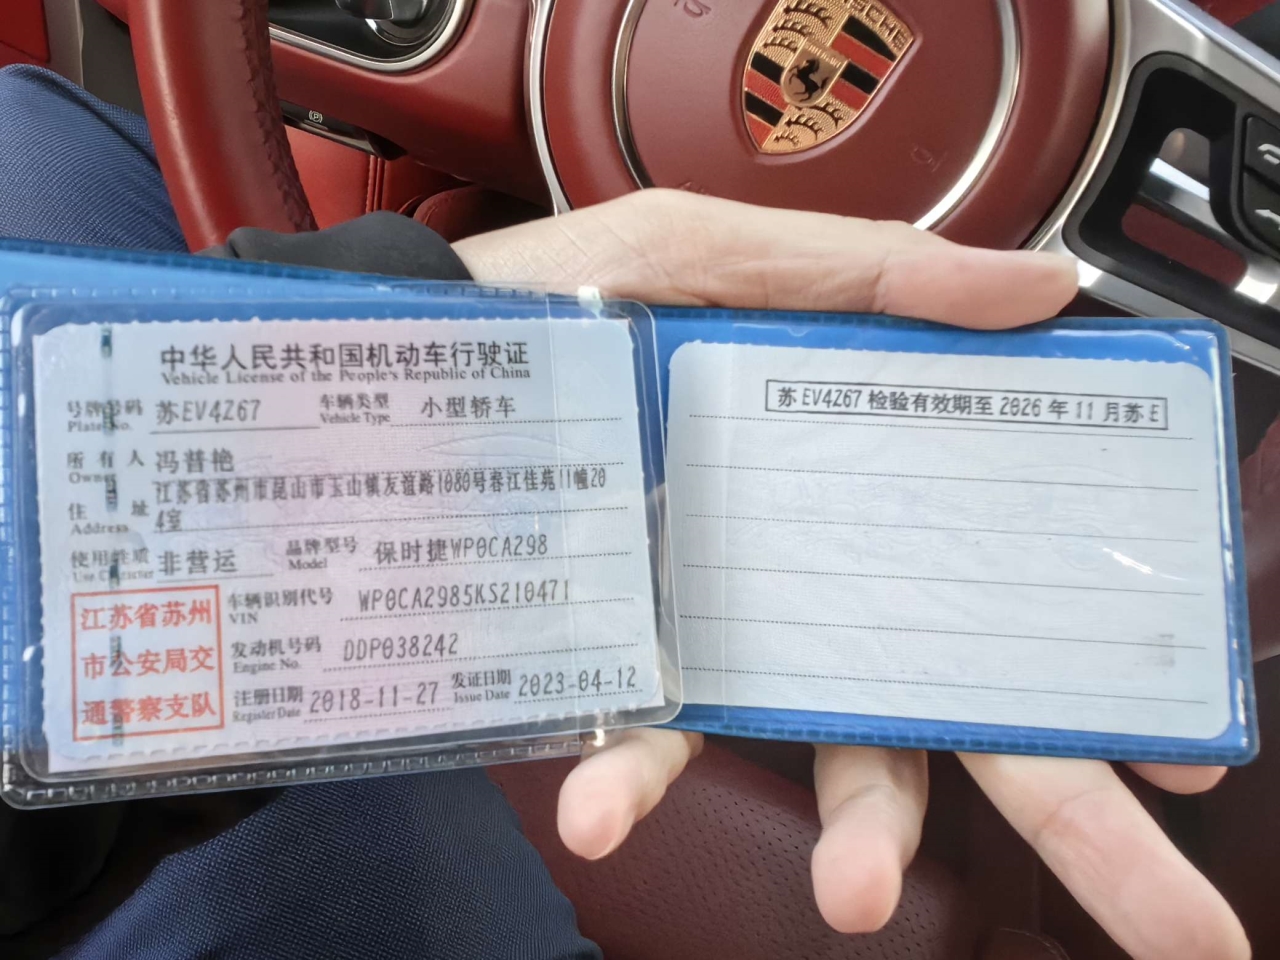 PORSCHE
中华人民共和国机动车行驶证
Vehicle License of the People's Republic of China
号牌号码 苏EV4Z67 车辆类型 小型轿车
Plate No. Vehicle Type
所有人 冯普艳
Owner
住址 江苏省苏州市昆山市玉山镇友谊路1080号春江佳苑11幢20
Address 4室
使用性质 非营运 品牌型号 保时捷WP0CA298
Use Character Model
车辆识别代号 WP0CA2985KS210471
VIN
发动机号码 DDP038242
Engine No.
注册日期 2018-11-27 发证日期 2023-04-12
Register Date Issue Date
江苏省苏州
市公安局交
通警察支队
苏EV4Z67 检验有效期至 2026 年 11 月苏 E